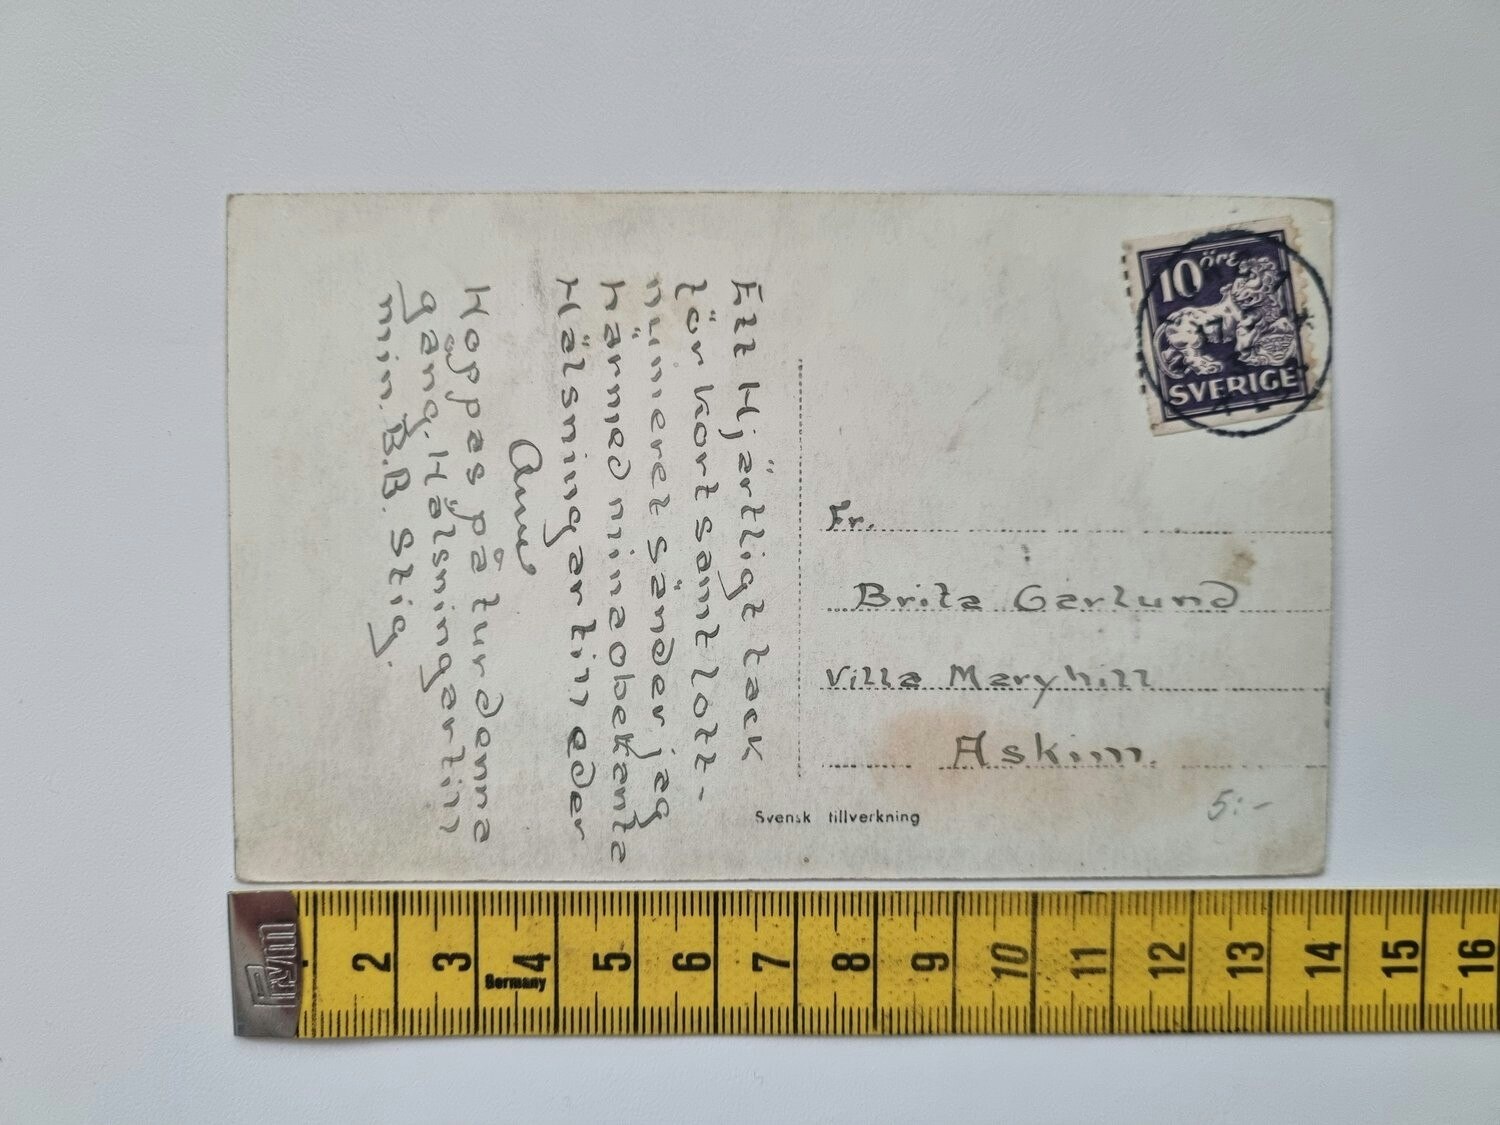 Ett Hjärtligt tack
för kort samt lott-
numeret sänder jag
härmed mina obekanta
Hälsningar till eder
Hoppas på tur denna
gång. Hälsningar till
min. B.B. Stig.
10 öre
SVERIGE
17
Fr.
Brita Garlund
Villa Maryhill
Askim.
5:-
Svensk tillverkning
2 3 4 5 6 7 8 9 10 11 12 13 14 15 16
Germany